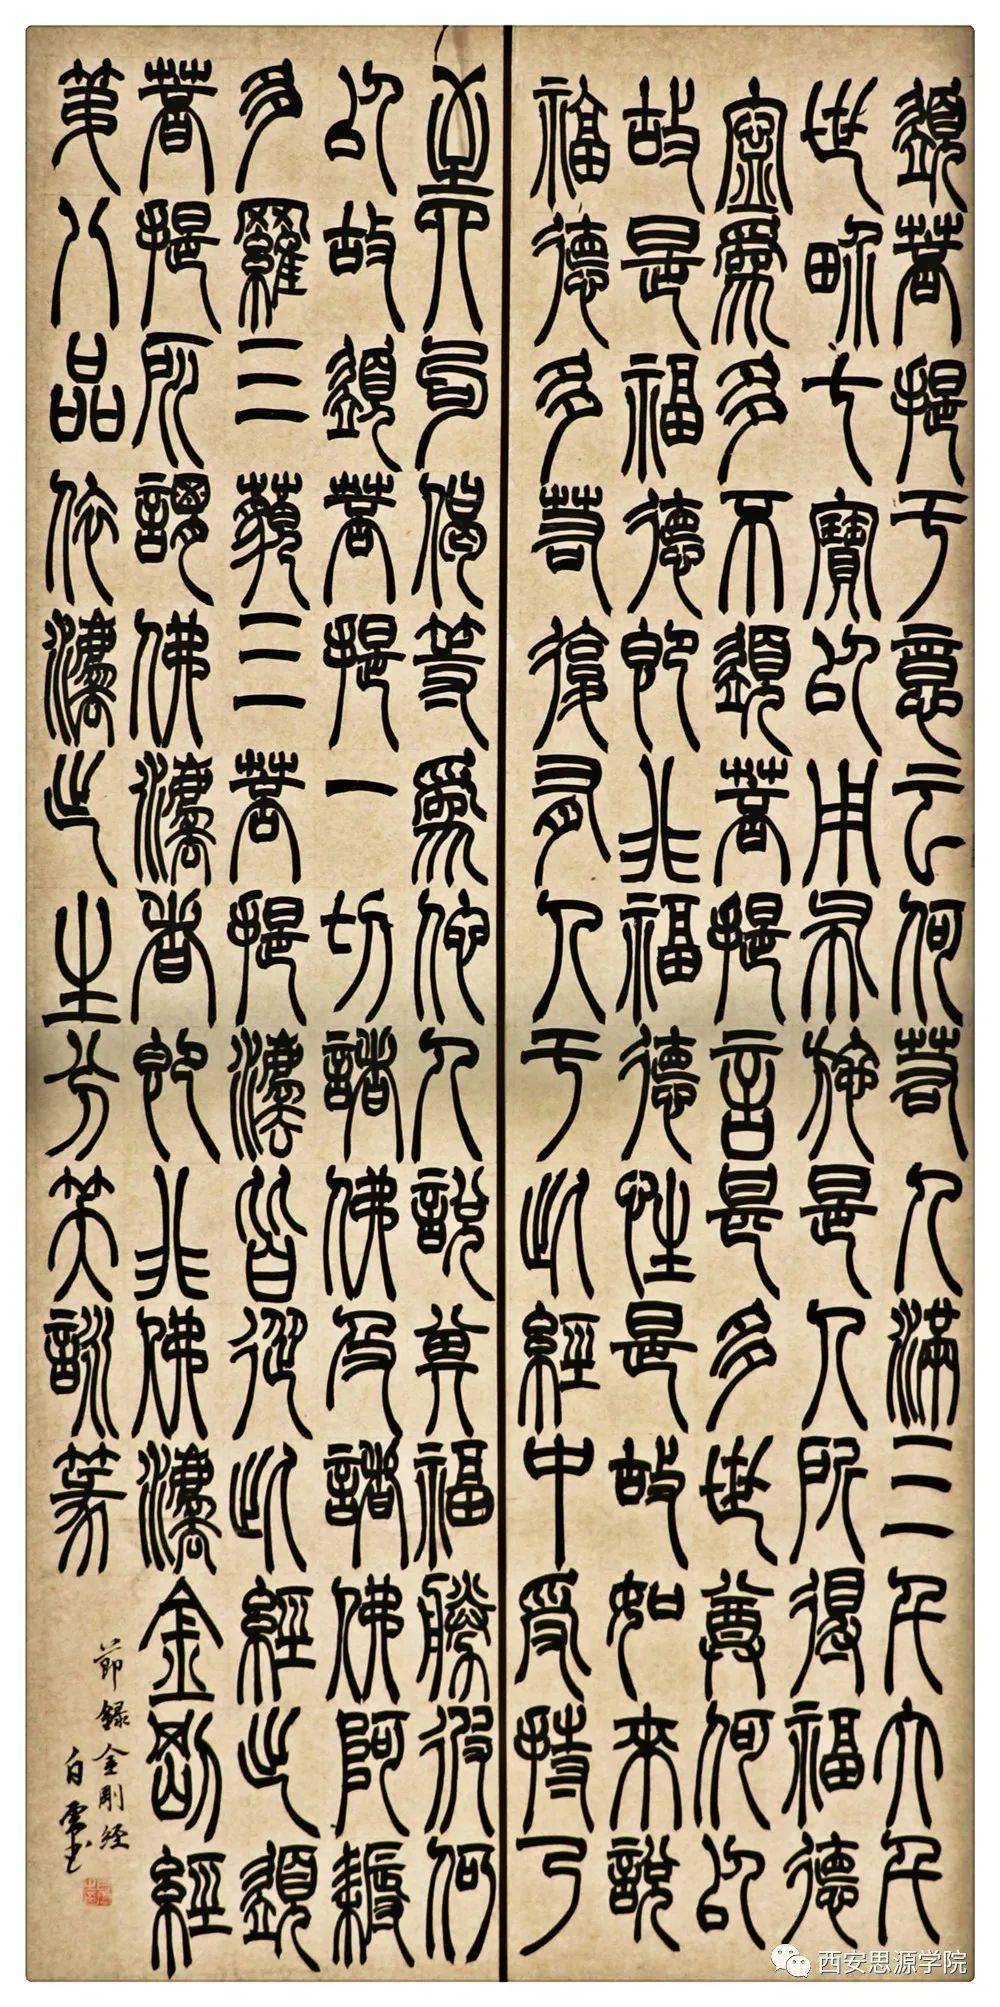 須菩提于意云何若人滿三千大千
世界七寶以用布施是人所得福德
寧爲多不須菩提言甚多世尊何以
故是福德即非福德性是故如來說
福德多若復有人于此經中受持乃
至四句偈等爲他人說其福勝彼何
以故須菩提一切諸佛及諸佛阿耨
多羅三藐三菩提法皆從此經出須
菩提所謂佛法者即非佛法金剛經
第八品依法出生分
節録金剛经
西安思源学院